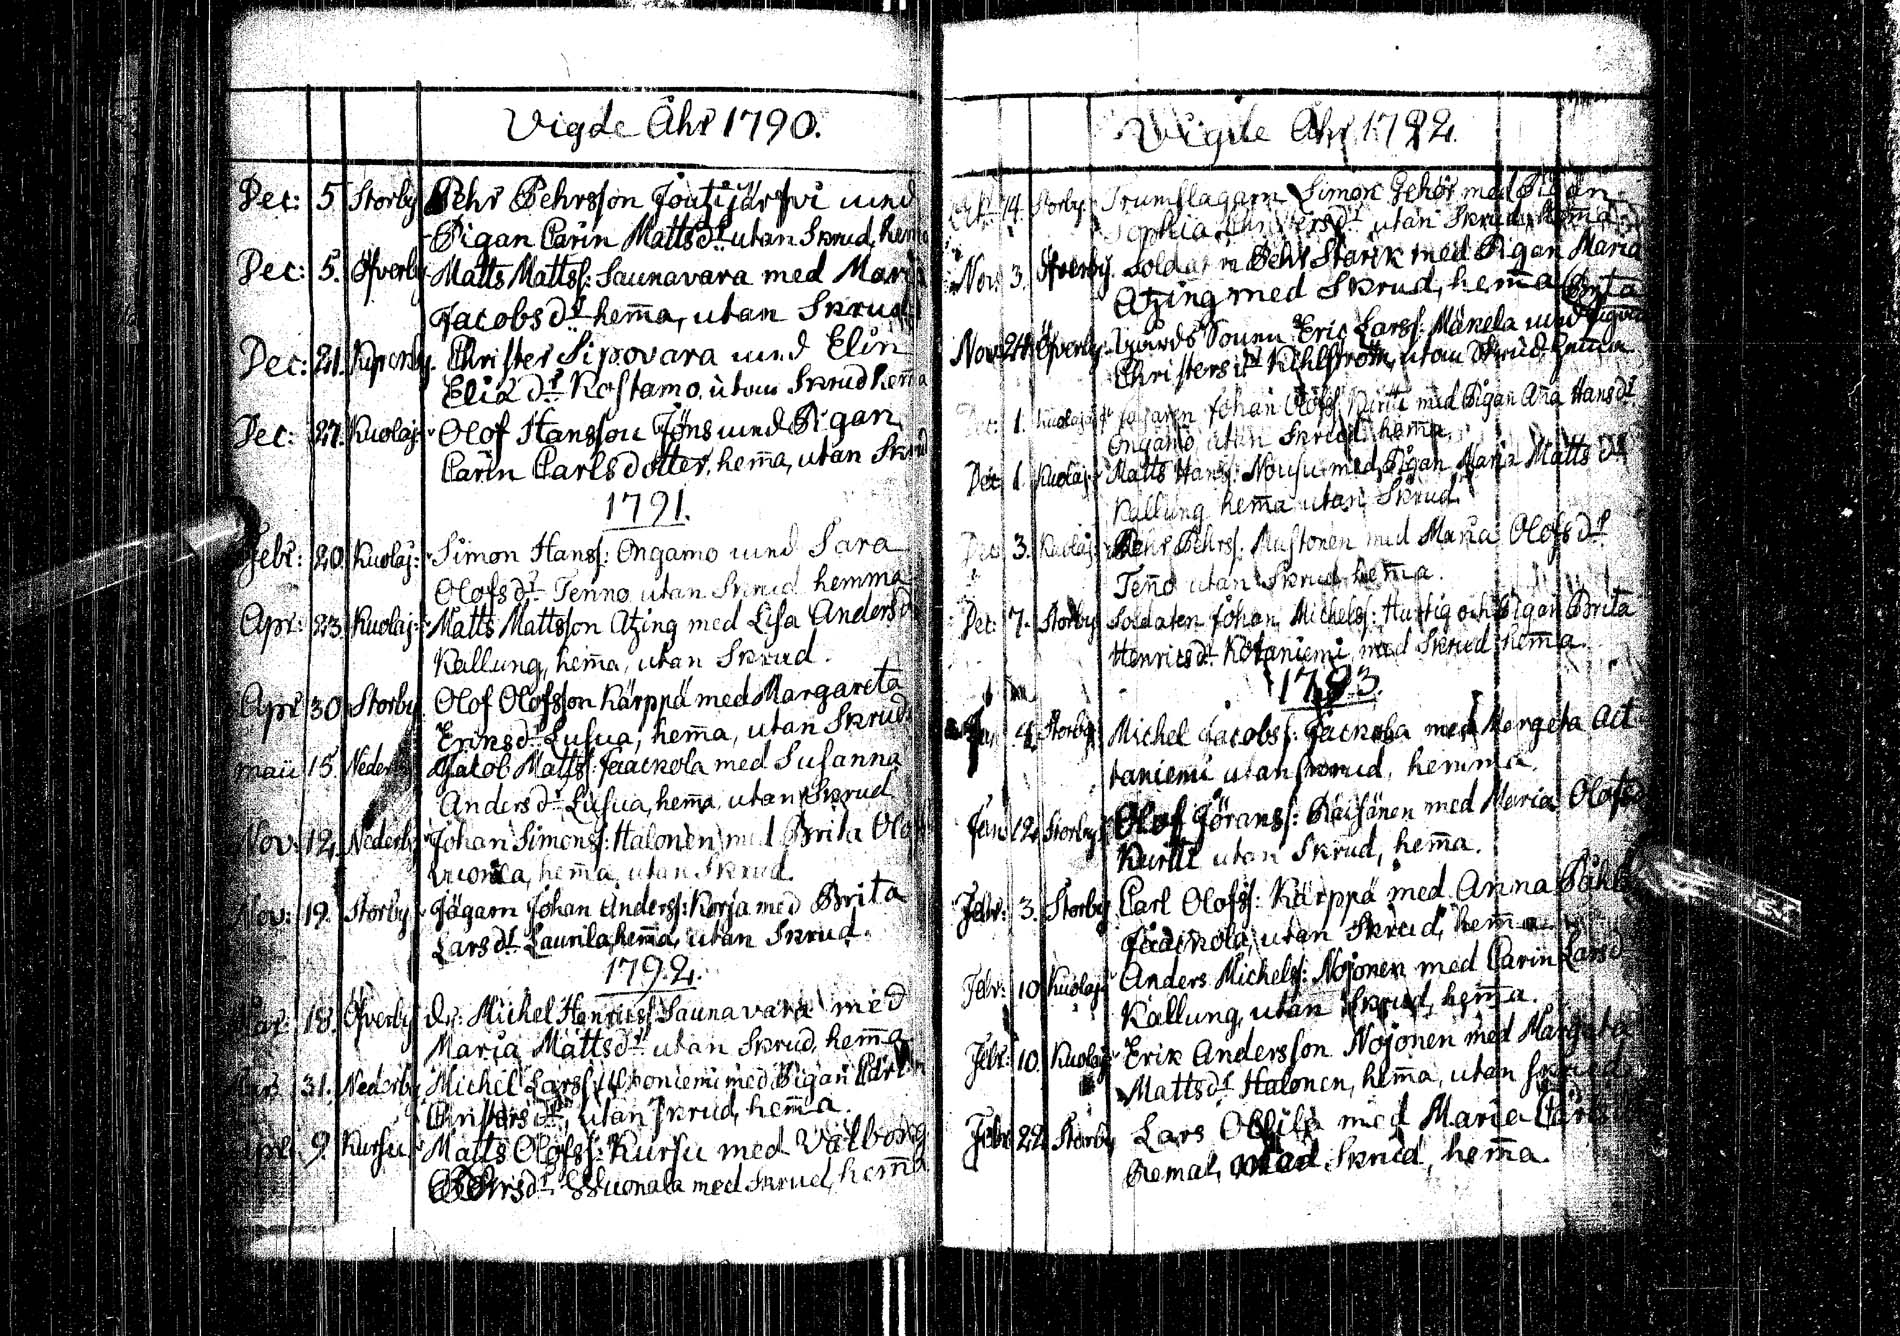 Vigde Åhr 1790.
Dec: 5 Storby Pehr Pehrsson Joutijärfvi med
Pigan Carin Mattsdr utan Skrud, hem̄a
Dec: 5. Öfverby Matts Mattss: Saunavara med Mar
Jacobs dr hem̄a, utan Skrud
Dec: 21. Christer Sipovara med Elin
Elia dr Kostamo, utan Skrud hem̄a
Dec: 27. Kuolaj: Olof Hansson Jöns med Pigan
Carin Carlsdotter, hem̄a, utan Skrud
1791.
Febr: 20. Kuolaj: Simon Hanss: Ongamo med Sara
Olofsdr Tenno utan Skrud hemma
Apr: 23 Kuolaj: Matts Mattsson Atzing med Lisa Andersd
Kallung, hem̄a, utan Skrud.
Apr 30 Storby Olof Olofsson Kärppä med Margareta
Eriksdr Lusua, hem̄a, utan Skrud
maii 15. Nederby Jacob Matts: Jaackola med Susanna
Anders dr Lusua, hem̄a, utan Skrud
Nov: 12. Nederby Johan Simonss: Halonen med Brita Olo
hem̄a, utan Skrud.
Nov: 19. Storby Jägarn Johan Anderss: Korja med Brita
Lars dr Laurila, hem̄a, utan Skrud.
1792.
18. Öfverby Dr: Michel Henricss Saunavara med
Maria Mattsdr utan Skrud, hem̄a
31. Nederby Michel Larss med Pigan Car
Christers dr, utan Skrud, hem̄a.
9. Kursu Matts Olofss: Kursu med Valborg
med Skrud, hem̄a
Vigde Åhr 1792.
14. Storby Trumslagarn Simon Gehör med Pigan
Sophia Christersdr utan Skrud, hem̄a
Nov: 3. Öfverby. Soldaten Pehr Starck med Pigan Maria
Atzing med Skrud, hem̄a
Nov: 24 Öfverby. Gårds Sonen Eric Larss: Mäkela med Pigan Brita
Christers dr Kihlström, utan Skrud, hemma
Dec: 1. Kuolaj: Johan Olofss: Kurtti med Pigan Aña Hansdr
Ongamo utan Skrud, hem̄a.
Dec 1. Kuolaj: Matts Hanss: Nousu med Pigan Maria Matts dr
Kallung hem̄a utan Skrud.
Dec 3. Kuolaj: Pehr Pehrss: Mustonen med Maria Olofsdr
Teño utan Skrud, hem̄a.
Dec: 7. Storby Soldaten Johan Michelss: Hurtig och Pigan Brita
Henricsdr Kotaniemi, med Skrud hem̄a.
1793.
Jan 4. Storby Michel Jacobss: Jackola med Margeta Ait
taniemi utan skrud, hemma.
Jan 12 Storby Olof Jöranss: Räisänen med Maria Olofsd
Kurtti utan Skrud, hem̄a.
Febr: 3. Storby Carl Olofss: Kärppä med Anna Påhls
Jaackola, utan Skrud, hem̄a.
Febr: 10 Kuolaj: Anders Michelss: Nojonen med Carin Larsd
Kallung, utan Skrud, hem̄a.
Febr: 10. Kuolaj: Erik Andersson Nojonen med Margeta
Mattsdr Halonen, hem̄a, utan skrud
Febr: 22 Storby Lars Ollila med Maria
Remal, Skrud, hem̄a.